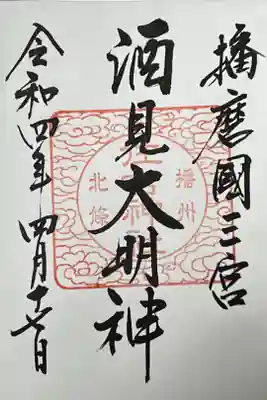 播磨國三宮
酒見大明神
播州
北條
住吉神社
令和四年四月十七日